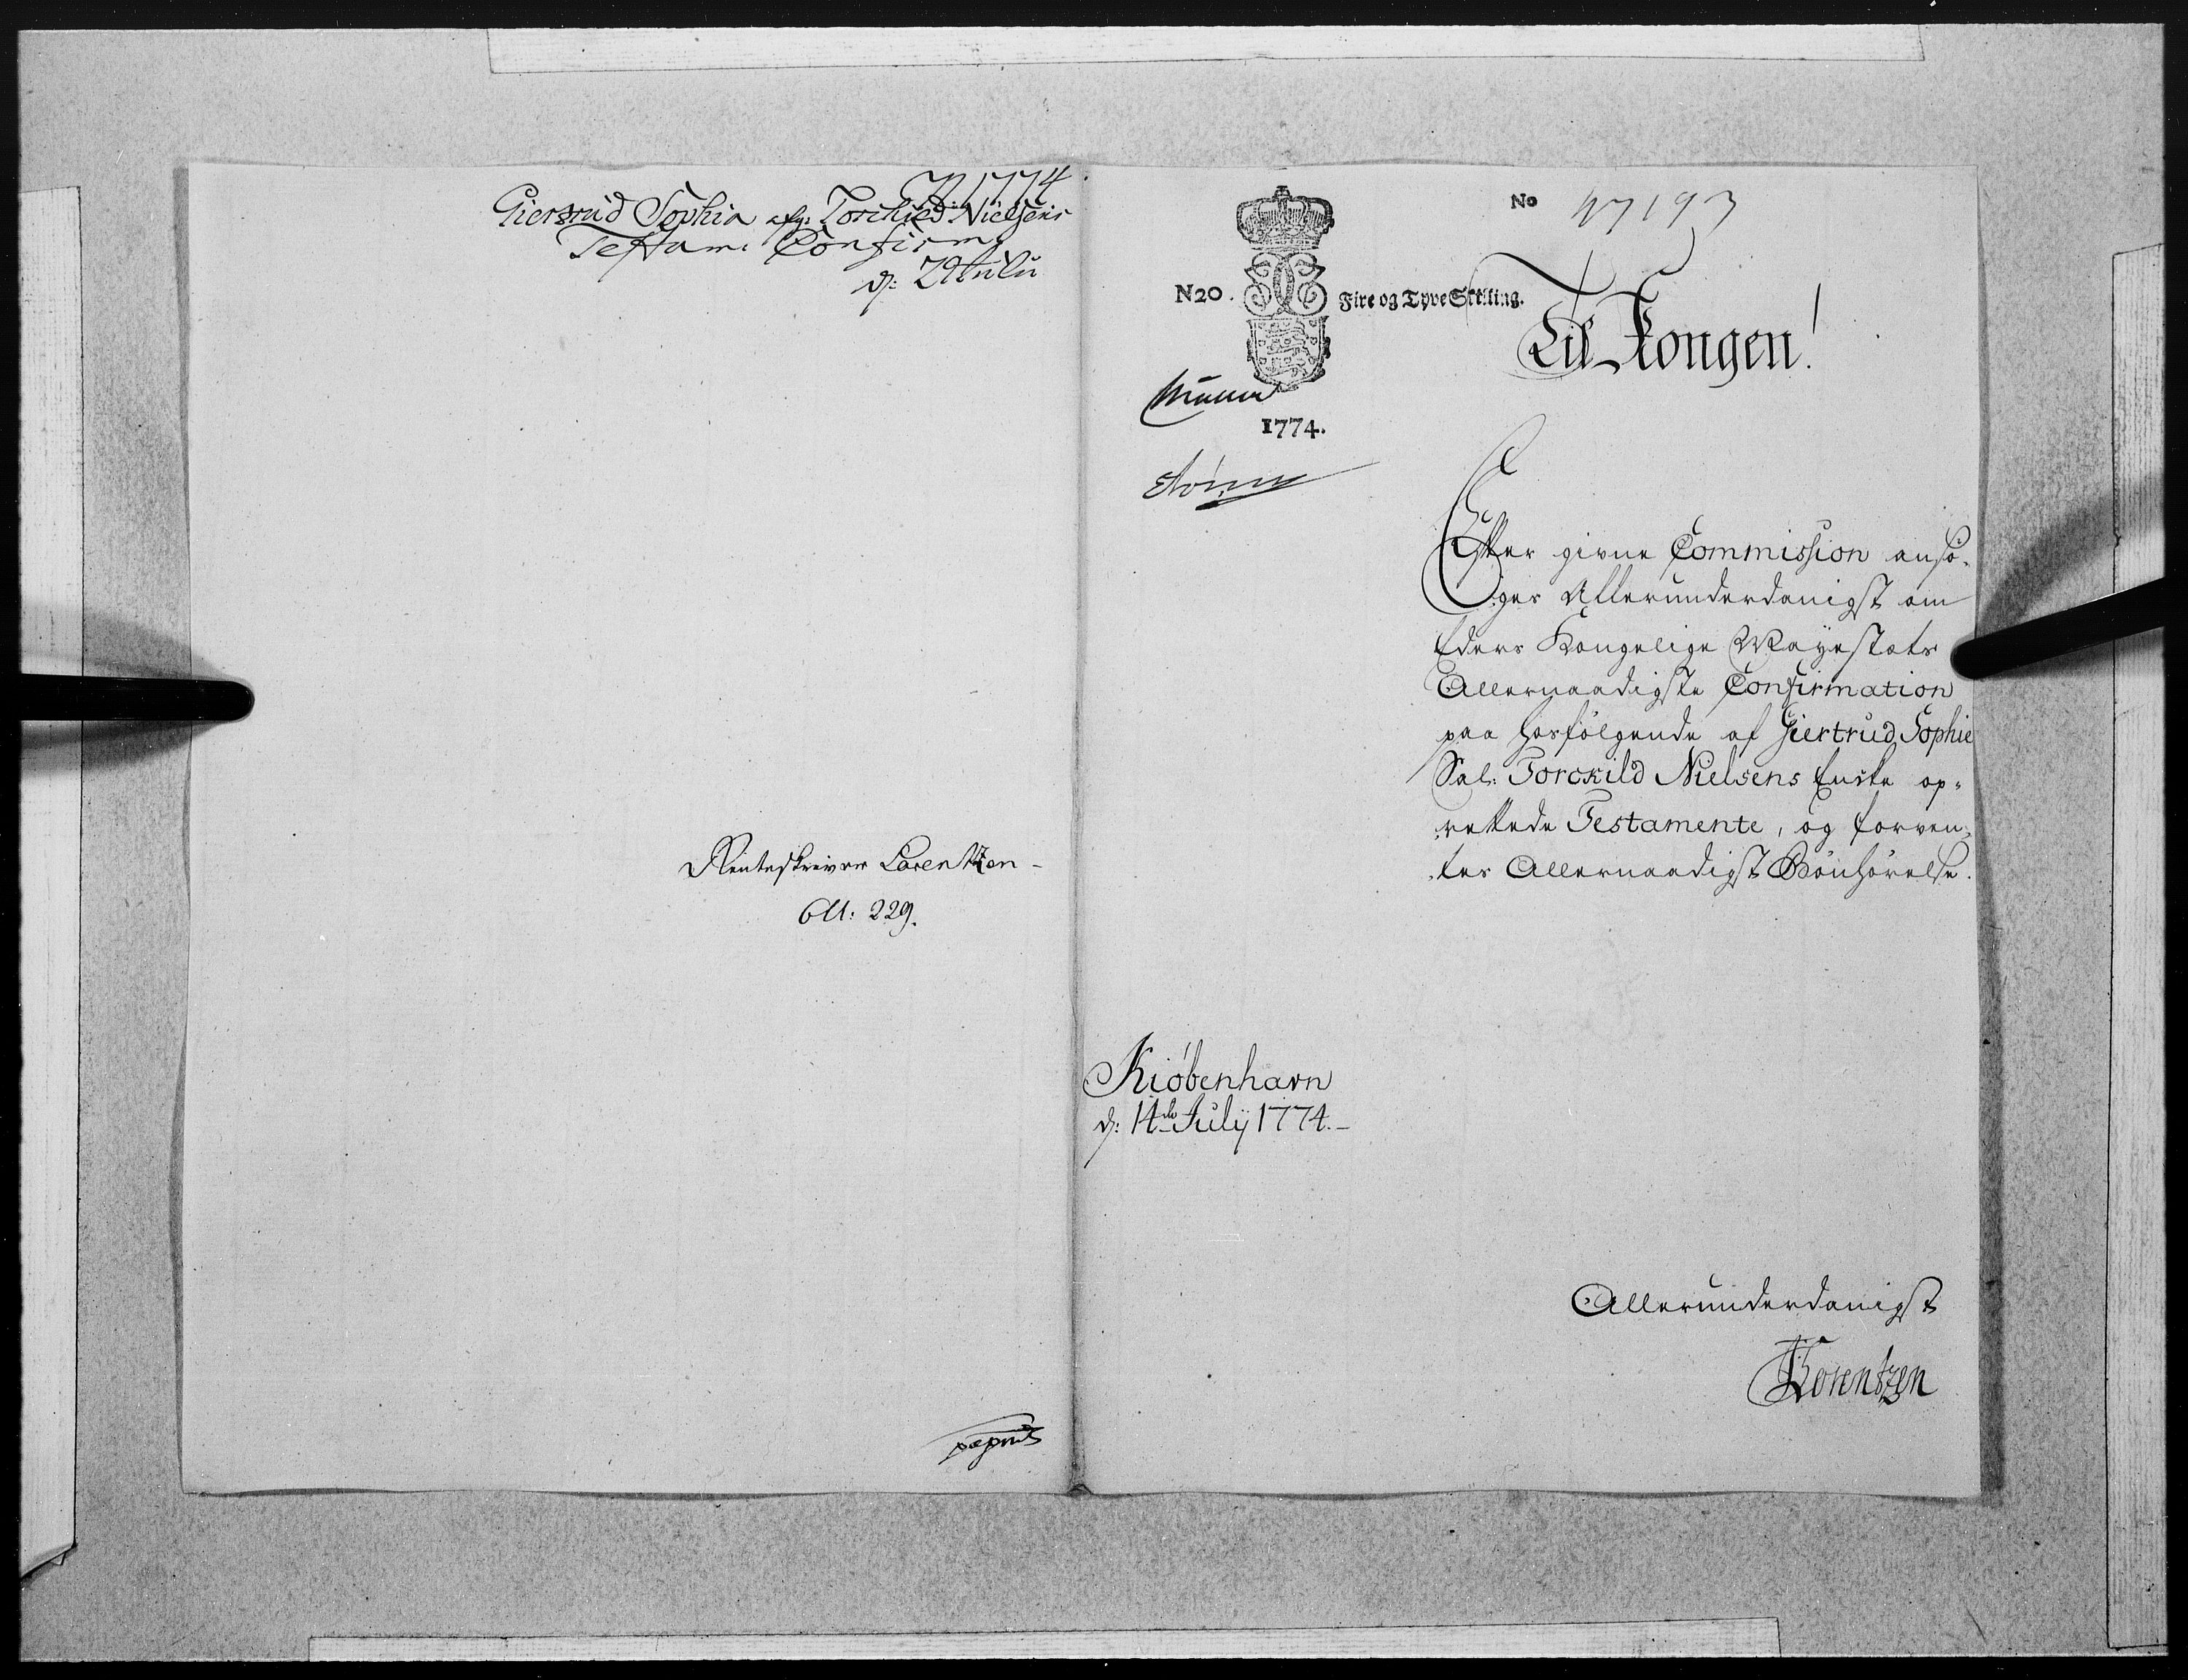 1774
Giertrud Sophia afg: Torchild Nielsens
Testam: Confirm
d: 29 Julii
Renteskriver Lorentzen -
Oll: 229.
No 47193
N20. Fire og Tyve Skilling.
1774.
Til Kongen!
Efter givne Commission ansø-
ges Allerunderdanigst om
Eders Kongelige Mayestæts
Allernaadigste Confirmation
paa hosfølgende af Giertrud Sophie
Sal: Torckild Nielsens Enke op-
rettede Testamente, og forven-
tes Allernaadigst Bønhørelse.
Kiøbenhavn
d: 14de Julij 1774.-
Allerunderdanigst
Lorentzen